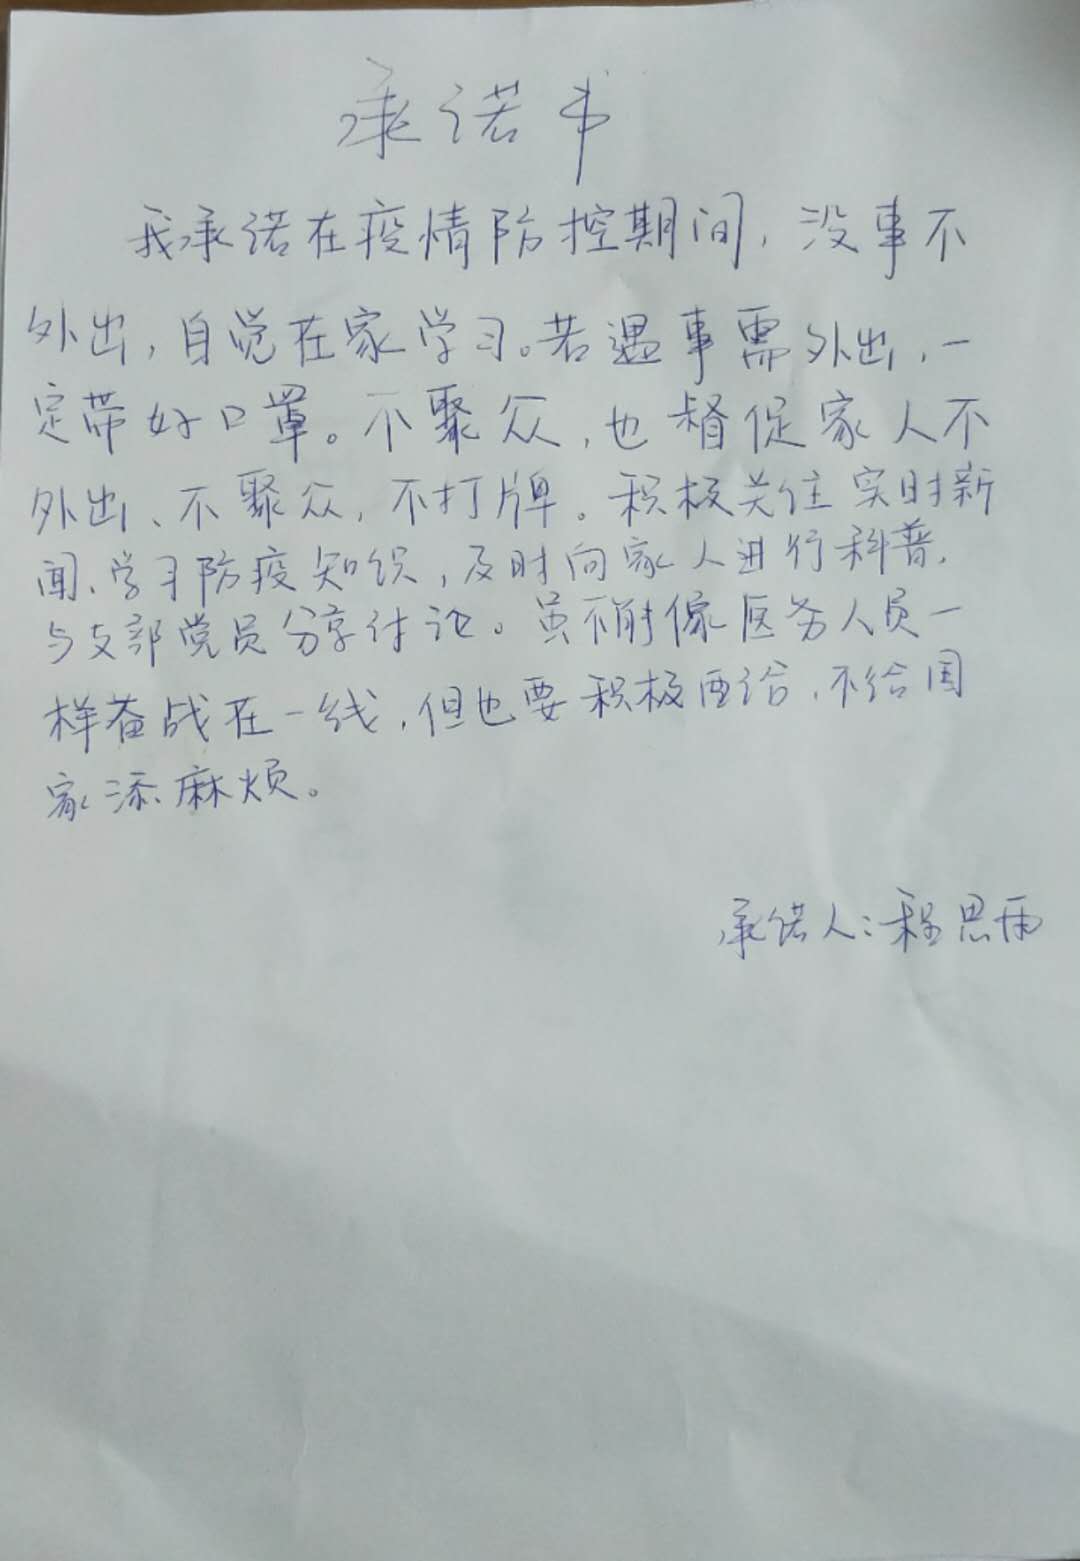 承诺书
我承诺在疫情防控期间，没事不
外出，自觉在家学习。若遇事需外出，一
定带好口罩。不聚众，也督促家人不
外出、不聚众，不打牌。积极关注实时新
闻、学习防疫知识，及时向家人进行科普，
与支部党员分享讨论。虽不能像医务人员一
样奋战在一线，但也要积极配合，不给国
家添麻烦。
承诺人：程思雨